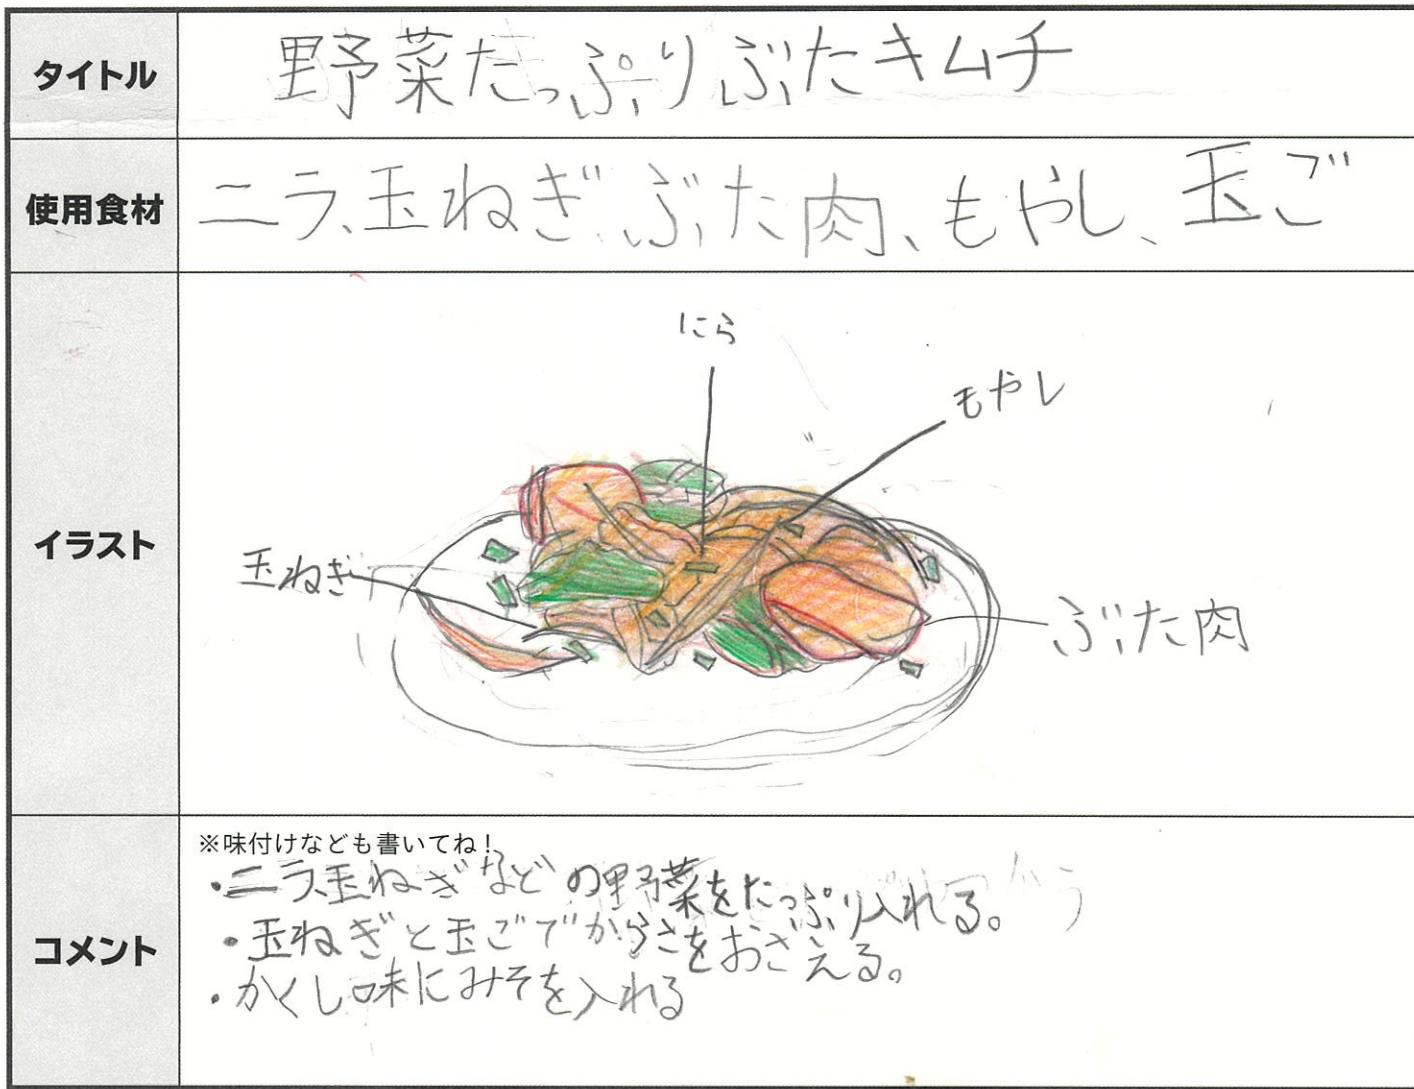 タイトル
野菜たっぷりぶたキムチ
使用食材
ニラ、玉ねぎ、ぶた肉、もやし、玉ご
イラスト
にら
もやし
玉ねぎ
ぶた肉
コメント
※味付けなども書いてね!
・ニラ、玉ねぎなどの野菜をたっぷり入れる。
・玉ねぎと玉ごでからさをおさえる。
・かくし味にみそを入れる